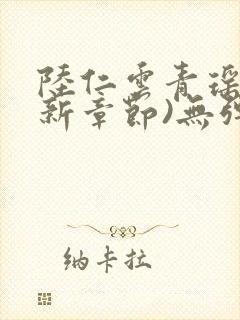 陸仁雲青瑤
新章節)無彈
纳卡拉